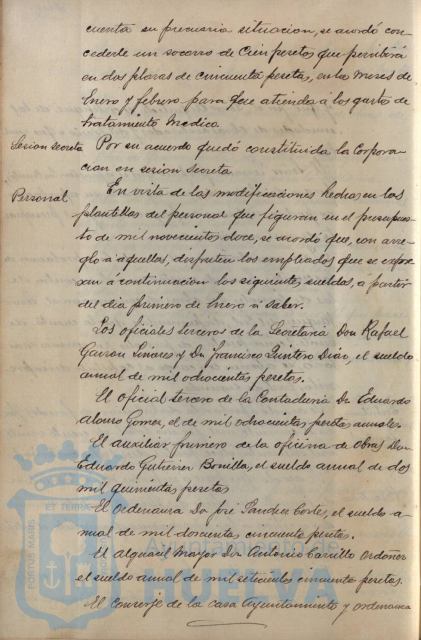 cuenta su precaria situacion, se acordó con-
cederle un socorro de Cien pesetas que percibirá
en dos plazas de cincuenta pesetas, en los meses de
Enero y febrero para que atienda á los gastos de
tratamiento medico.
Sesion secreta Por su acuerdo quedó constituida la Corpora-
cion en sesion secreta.
Personal En vista de las modificaciones hechas en las
plantillas del personal que figuran en el presupues-
to de mil novecientos doce, se acordó que, con arre-
glo á aquellas, disfruten los empleados que se expre-
san á continuacion los siguientes sueldos, á partir
del dia primero de Enero á saber.
Los oficiales terceros de la Secretaria Don Rafael
Garzon Linares y Dn Francisco Quintero Diaz, el sueldo
anual de mil ochocientas pesetas.
El oficial tercero de la Contaduria Dn Eduardo
Alonso Gomez, el de mil ochocientas pesetas anuales.
El auxiliar primero de la oficina de Obras Don
Eduardo Gutierrez Bonilla, el sueldo anual de dos
mil quinientas pesetas
El Ordenanza Dn José Sanchez Cortes, el sueldo a-
nual de mil doscientas cincuenta pesetas.
El alguacil Mayor Dn Antonio Carrillo Ordoñez
el sueldo anual de mil setecientas cincuenta pesetas.
El Conserje de la casa Ayuntamiento y ordenanza
PORTUS MARIS ET TERRAE
HUELVA